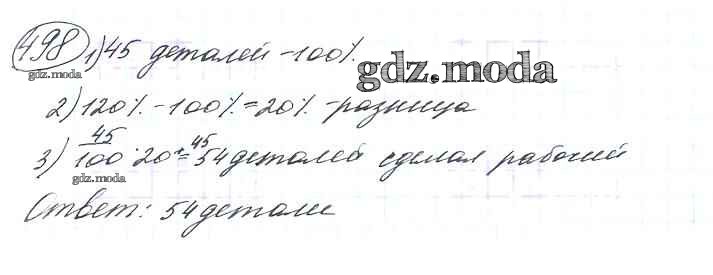 498 1) 45 деталей - 100%.
gdz.moda
gdz.moda
2) 120% - 100% = 20% - разница
3) 45/100 · 20 + 45 = 54 деталей сделал рабочий
gdz.moda
Ответ: 54 детали